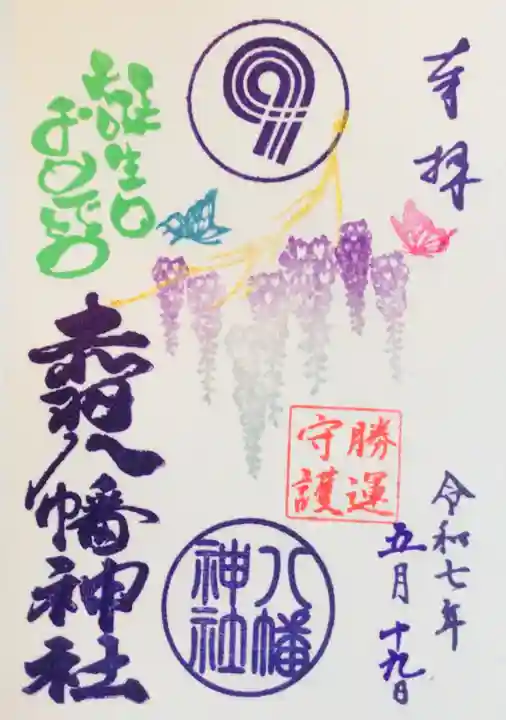 奉拝
勝運
守護
令和七年
五月十九日
八幡
神社
誕生日
おめでとう
赤羽八幡神社